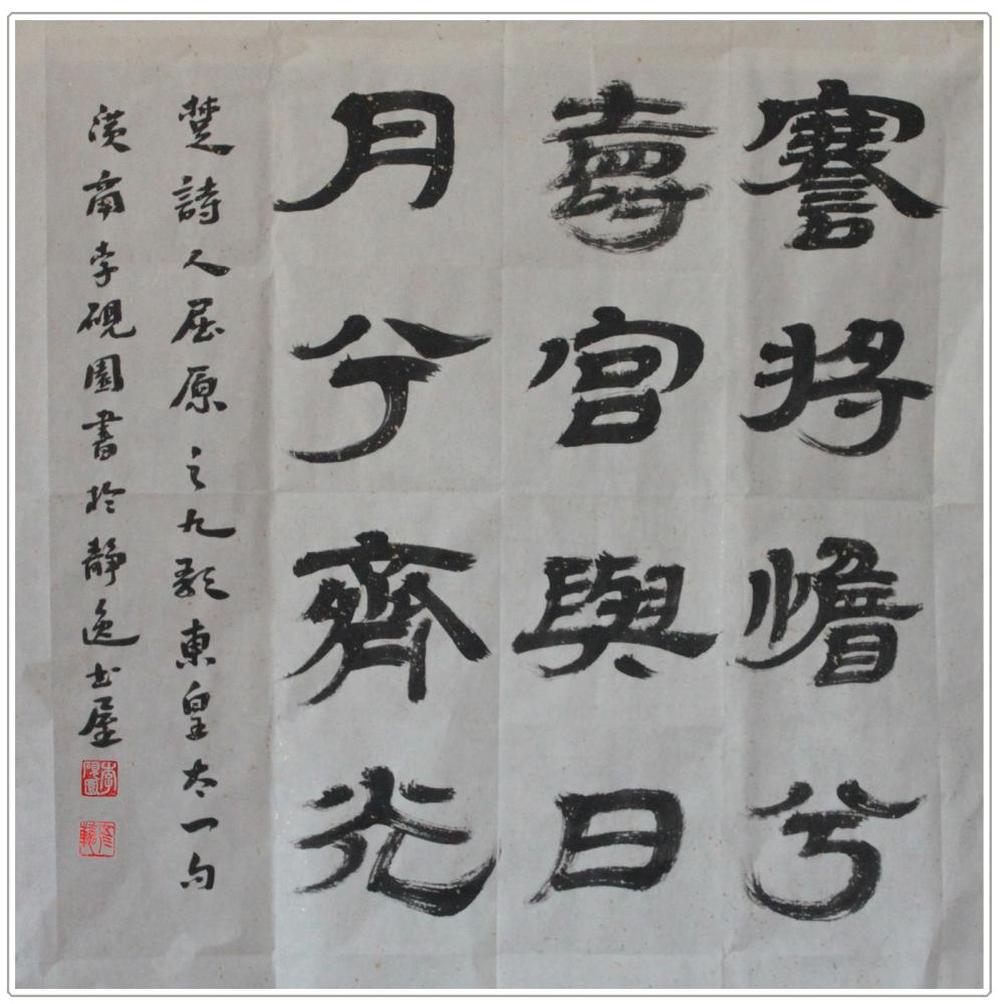 謇將憺兮
壽宮與日
月兮齊光
楚詩人屈原之九歌東皇太一句
漢南李硯園書於靜逸書屋